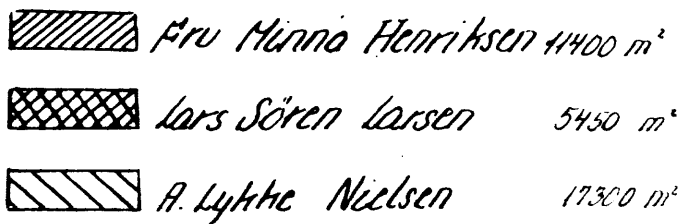 Fru Minna Henriksen 11400 m²
Lars Sören Larsen 5450 m²
A. Lykke Nielsen 17300 m²